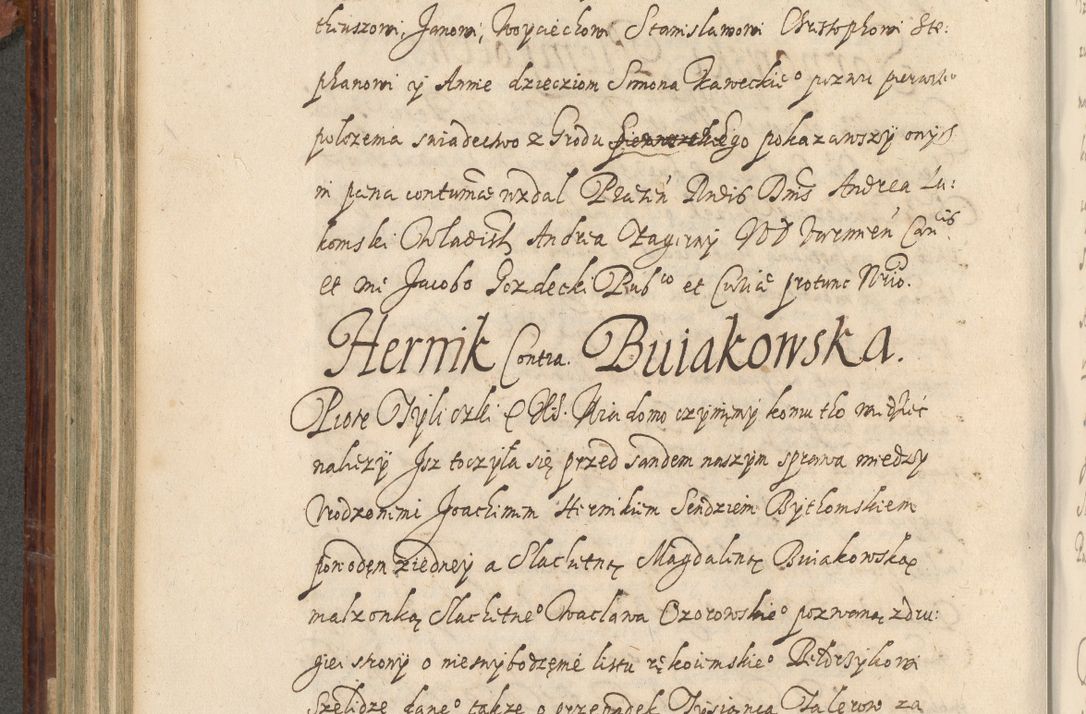 theuszowi, Janowi, Woyciechowi Stanisławowi Christophowi Ste:
phanowi y Annie dzieciom Simona Kaweckieº pozwu pierwszeº
położenia swiadectwo z Grodu pokazawszy onych
w pena contumac wzdal Andrea Lu:
komski Wladisl Andrea
et me Jacobo Gozdecki Pubco et Curiæ protunc Nrio.
Hernik Contra. Buiakowska.
Piotr Tyliczki Wiadomo czynięmy komu tho wiedzieć
nalezy Isz toczyła się przed sandem naszym sprawa miedzy
Vrodzonimi Joachimem Hernikiem Sendziem Bythomskiem
powodęm ziedney a Slachetną Magdaleną Buiakowską
małzonką Slachetneº Wacława Ozorowskieº pozwaną zdru:
giei strony o niewybodzęnie listu rękoiemskieº
Szelidze daneº takze o przepadek Tysiąnca Talerow za